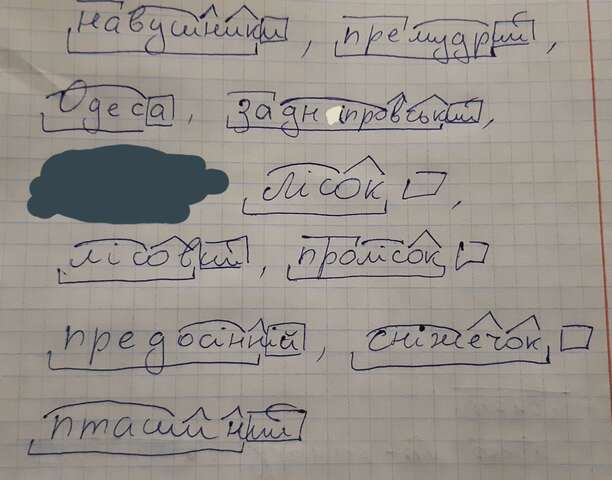 навушники, премудрий,
Одеса, задніпровський,
лісок,
лісовий, пролісок
предосінній, сніжечок
пташиний